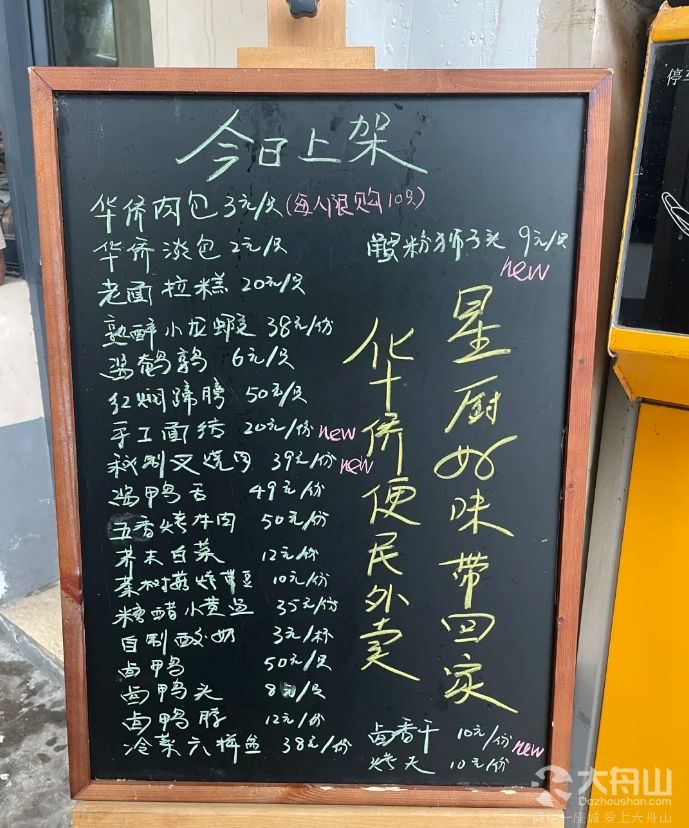 今日上架
华侨肉包 3元/只(每人限购10只)
华侨淡包 2元/只
蟹粉狮子头 9元/只
new
老面拉糕 20元/只
熟醉小龙虾 38元/份
鹌鹑 6元/只
红焖蹄膀 50元/只
手工面结 20元/份 new
秘制叉烧肉 39元/份 new
鸭舌 49元/份
五香烤牛肉 50元/份
芥末白菜 12元/份
烤带豆 10元/份
糖醋小黄鱼 35元/份
自制酸奶 3元/杯
卤鸭 50元/只
卤鸭头 8元/只
卤鸭脖 12元/份
冷菜六拼盘 38元/份
星厨好味带回家
华侨便民外卖
卤香干 10元/份 new
烤夫 10元/份
停车
大舟山
Dazhoushan.com
一座城 爱上大舟山